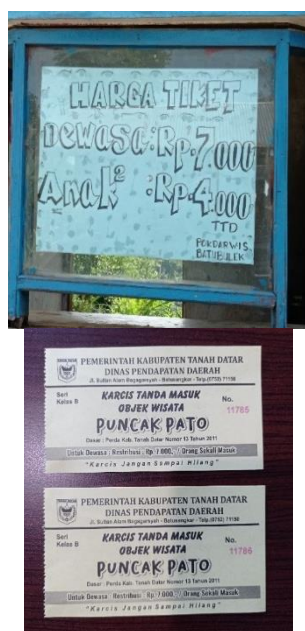 HARGA TIKET
Dewasa : Rp. 7.000
Anak² : Rp. 4.000
TTD
POKDARWIS
BATUBULEK
PEMERINTAH KABUPATEN TANAH DATAR
DINAS PENDAPATAN DAERAH
Jl. Sultan Alam Bagagarsyah - Batusangkar - Telp.(0752) 71198
Seri
Kelas B
KARCIS TANDA MASUK
OBJEK WISATA
No.
11785
PUNCAK PATO
Dasar : Perda Kab. Tanah Datar Nomor 13 Tahun 2011
Untuk Dewasa : Restribusi : Rp. 7.000,- / Orang Sekali Masuk
"Karcis Jangan Sampai Hilang"
PEMERINTAH KABUPATEN TANAH DATAR
DINAS PENDAPATAN DAERAH
Jl. Sultan Alam Bagagarsyah - Batusangkar - Telp.(0752) 71198
Seri
Kelas B
KARCIS TANDA MASUK
OBJEK WISATA
No.
11786
PUNCAK PATO
Dasar : Perda Kab. Tanah Datar Nomor 13 Tahun 2011
Untuk Dewasa : Restribusi : Rp. 7.000,- / Orang Sekali Masuk
"Karcis Jangan Sampai Hilang"